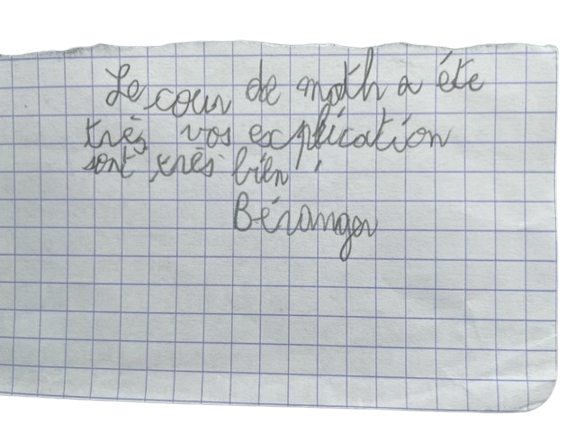 Le cour de math a éte
très vos explication
sont très bien !
Béranger